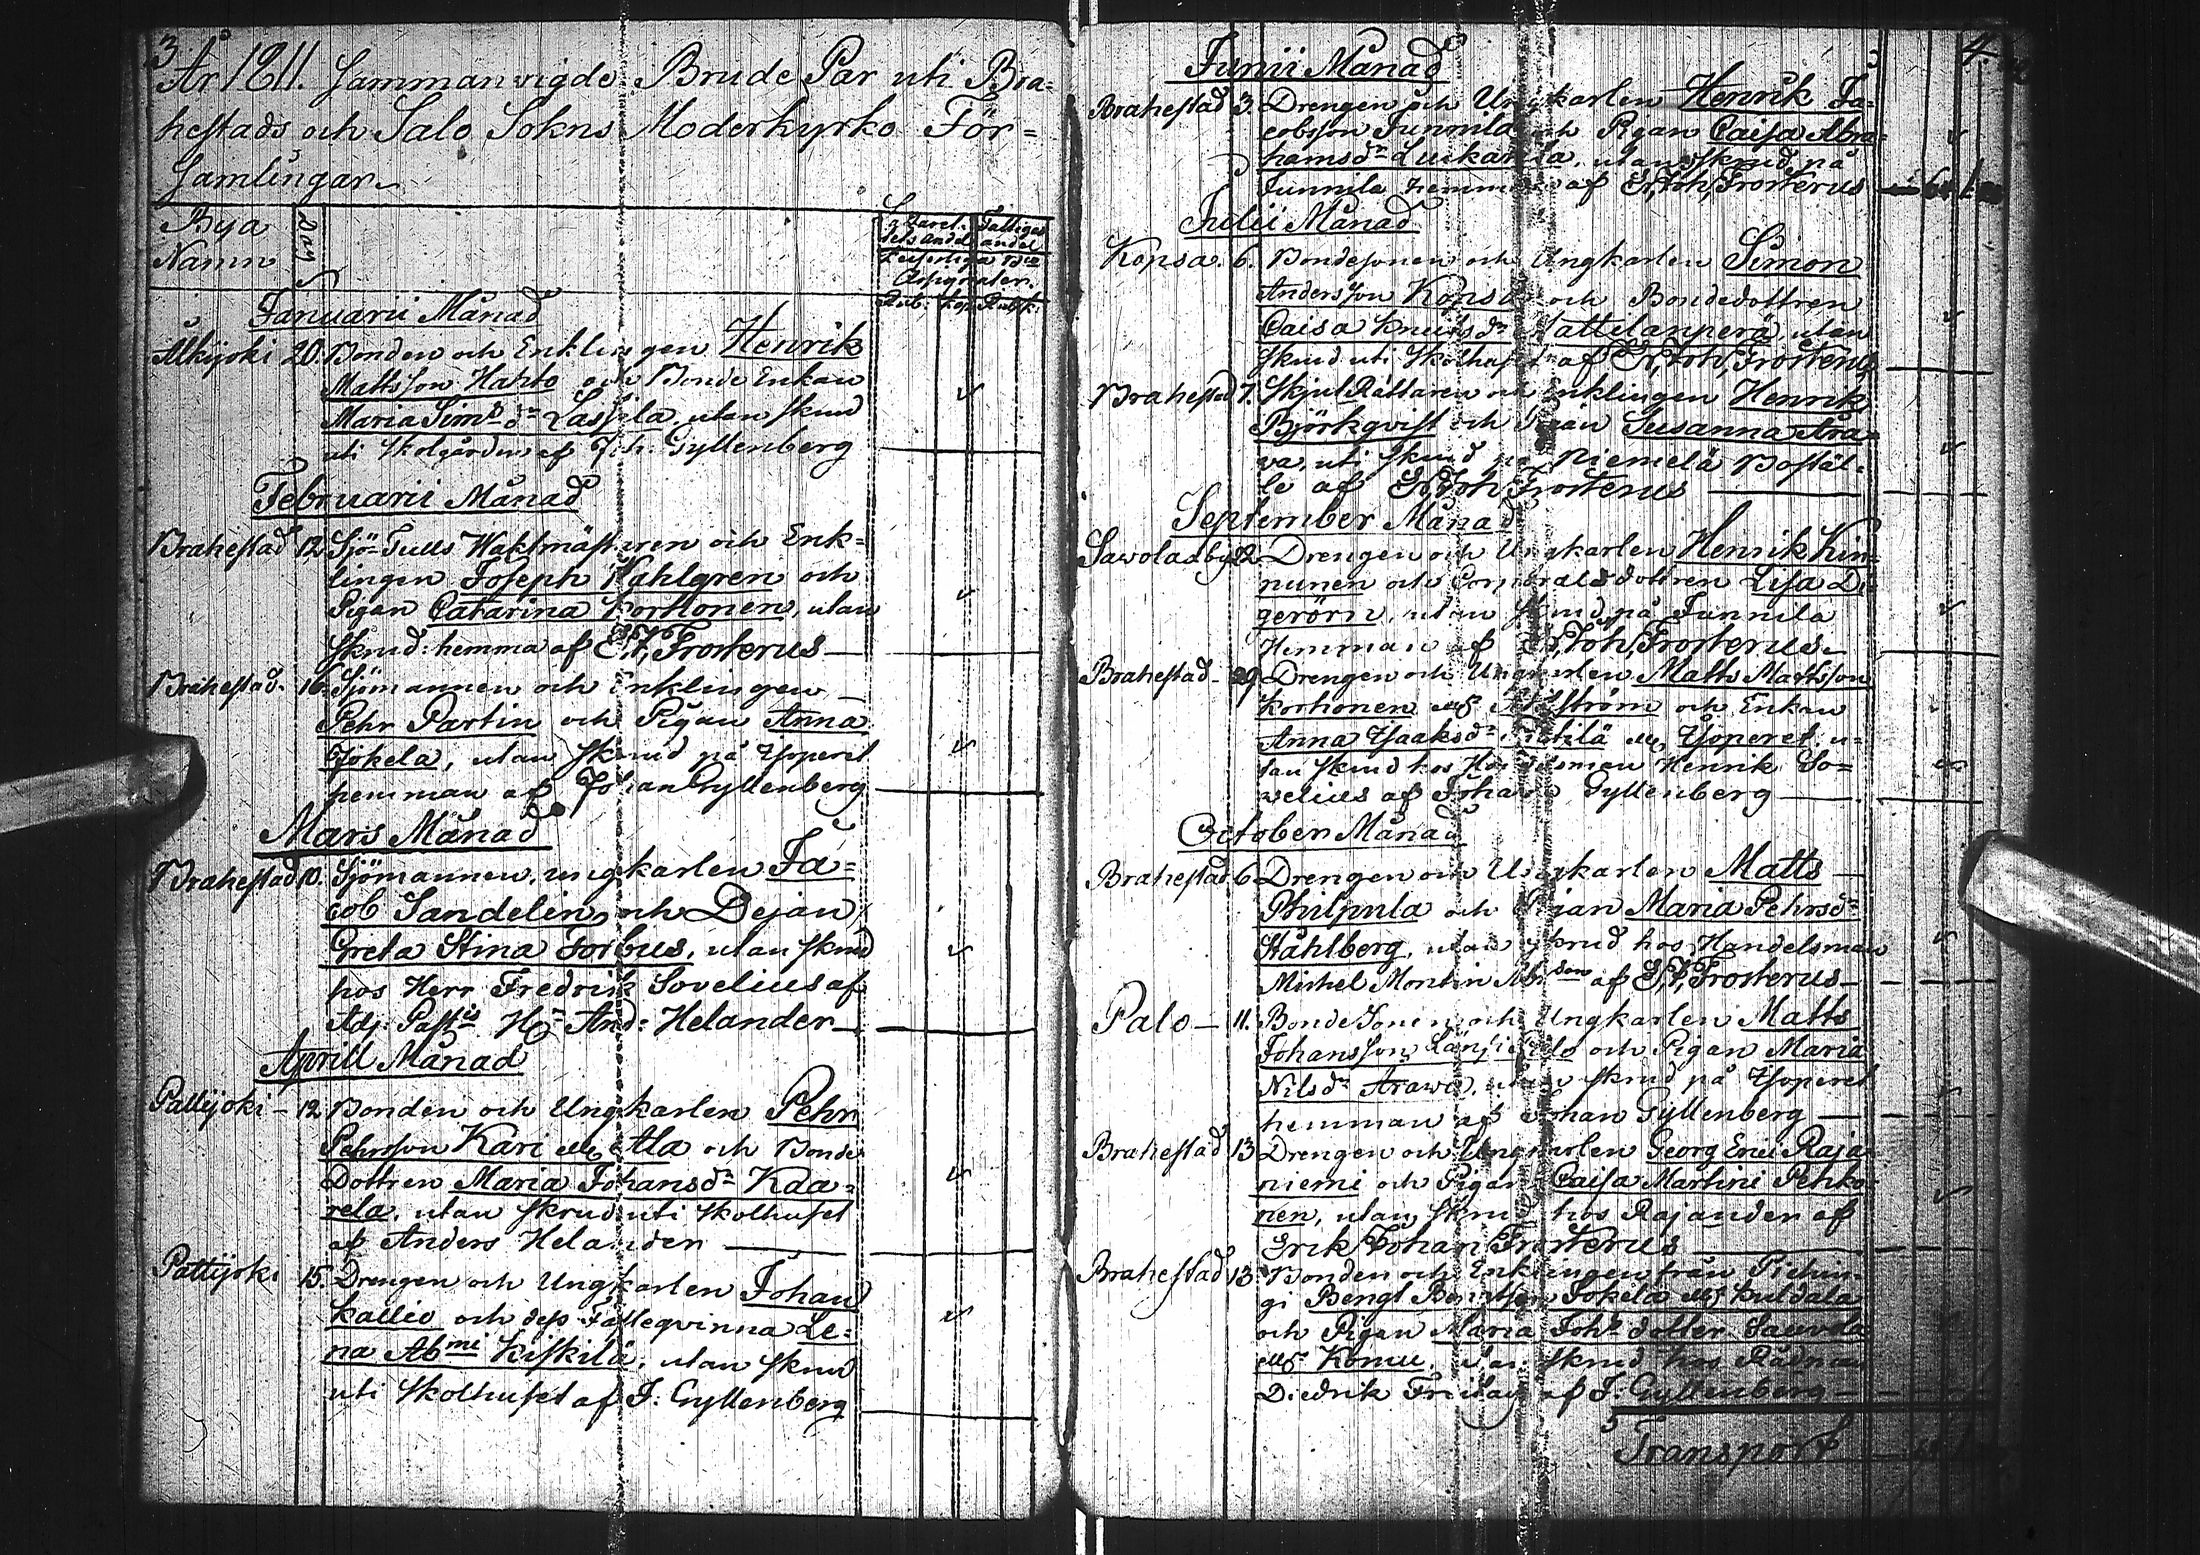 3.
År 1811. Sammanvigde Brude Par uti Bra=
hestads och Salo Sokns Moderkyrko För=
samlingar
Bya
Namn
Dag
Lazaret: Fattiges
tets andel andel
Riks
Assignater.
Rub. kop. Rub. k.
Januarii Månad
Alkijoki 20. Bonden och Enklingen Henrik
Mattsson Hahto och Bonde Enkan
Maria Sims dr Lassila utan skrud
uti Skolgården af Joh: Gyllenberg
Februarii Månad
Brahestad 12. Sjö-Tulls Waktmästaren och Enk=
lingen Joseph Wahlgren och
Pigan Catarina Korhonen, utan
skrud: hemma af E, J, Frosterus
Brahestad. 16. Sjömannen och Enklingen
Pehr Partin och Pigan Anna
Jokela, utan skrud på Ysoperet
hemman af Johan Gyllenberg
Mars Månad
Brahestad 10. Sjömannen, ungkarlen Ja=
cob Sandelin, och Dejan
Greta Stina Forbus, utan skrud
hos Herr Fredrik Sovelius af
Adj: Past:is Hr And: Helander
Aprill Månad
Pattijoki - 12. Bonden och Ungkarlen Pehr
Pehrsson Kari ell. Ala och Bonde
Dottren Maria Johansdr Kaa=
rela, utan skrud uti Skolhuset
af Anders Helander
Pattijoki 15. Drengen och Ungkarlen Johan
Kallio och dess Fästeqvinna Le=
na Abmi Kiskilä, utan skrud
uti Skolhuset af J: Gyllenberg
4.
Junii Månad
Brahestad 3. Drengen och Ungkarlen Henrik Ja=
cobsson Junnila och Pigan Caisa Abra=
hamsdr Luukaria, utan skrud på
Junnila hemman af Er, Joh, Frosterus
Julii Månad
Kopsa. 6. Bondesonen och Ungkarlen Simon
Andersson Kopsa och Bondedottren
Caisa Knuts dr Mattilanperä, utan
skrud uti Skolhuset af Er, Joh, Frosterus
Brahestad 7. Skjuts Rättaren och Enklingen Henrik
Björkqvist och Pigan Susanna Ara=
va, uti skrud på Niemelä Bostäl=
le af Er Joh Frosterus
September Månad
Sawolax by 22. Drengen och Ungkarlen Henrik Kin=
nunen och Corporalsdottren Lisa Di=
gerörn, utan skrud, på Junnila
Hemman af Er, Joh, Frosterus
Brahestad - 29. Drengen och Ungkarlen Matts Mattsson
Korhonen ell. Ahlström och Enkan
Anna Isaksdr Pahlä ell. Ysoperet, u=
tan skrud hos Handelsman Henrik So=
velius af Johan Gyllenberg
October Månad
Brahestad. 6. Drengen och Ungkarlen Matts
Philpula och Pigan Maria Pehrsdr
Ståhlberg, utan skrud hos Handelsman
Michel Montin af E, J, Frosterus
Palo - 11. Bonde Sonen och Ungkarlen Matts
Johansson och Pigan Maria
Nilsdr Arawa, utan skrud på Ysoperet
hemman af Johan Gyllenberg
Brahestad 13. Drengen och Ungkarlen Georg Erici Raja
niemi och Pigan Caisa Martini Pehko
nen, utan skrud hos Rajander af
Erik Johan Frosterus
Brahestad 13. Bonden och Enklingen från Pichin=
gi Bengt Bengtsson Jokela ell. Kuldala
och Pigan Maria Johs dotter Sauvola
ell. Komu, utan skrud hos Rådman
Diedrik Freitag af J: Gyllenberg
Transport